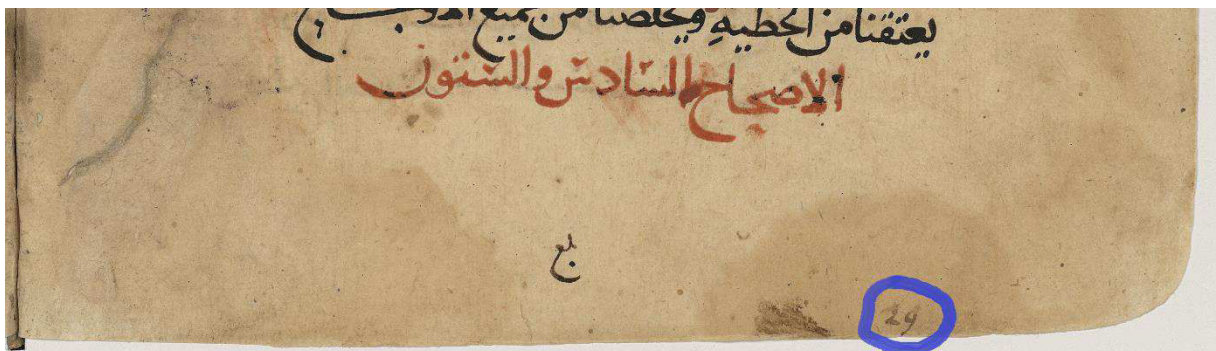 يعتقنا من الخطيه ويخلصنا من جميع
الاصحاح السادس والستون
بلغ
29